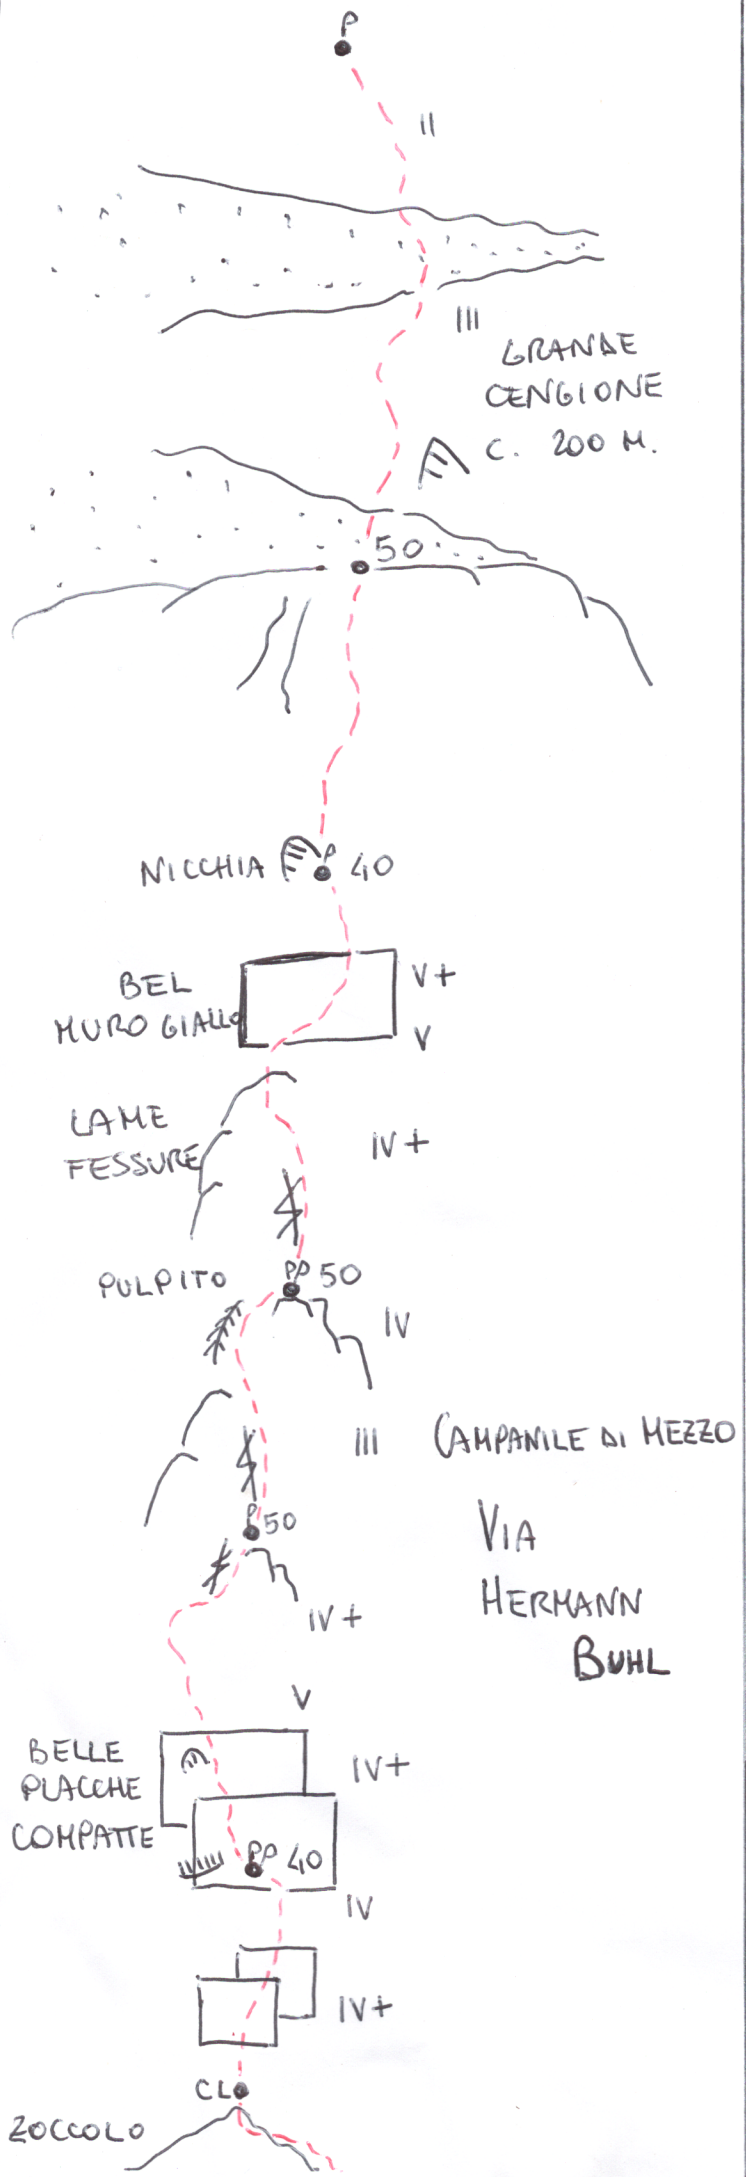 P
II
III
GRANDE
CENGIONE
C. 200 M.
50
NICCHIA P 40
BEL
MURO GIALLO
V+
V
LAME
FESSURE
IV+
PULPITO
PP 50
IV
III
CAMPANILE DI MEZZO
P 50
VIA
HERMANN
BUHL
IV+
V
BELLE
PLACCHE
COMPATTE
IV+
PP 40
IV
IV+
CL
ZOCCOLO